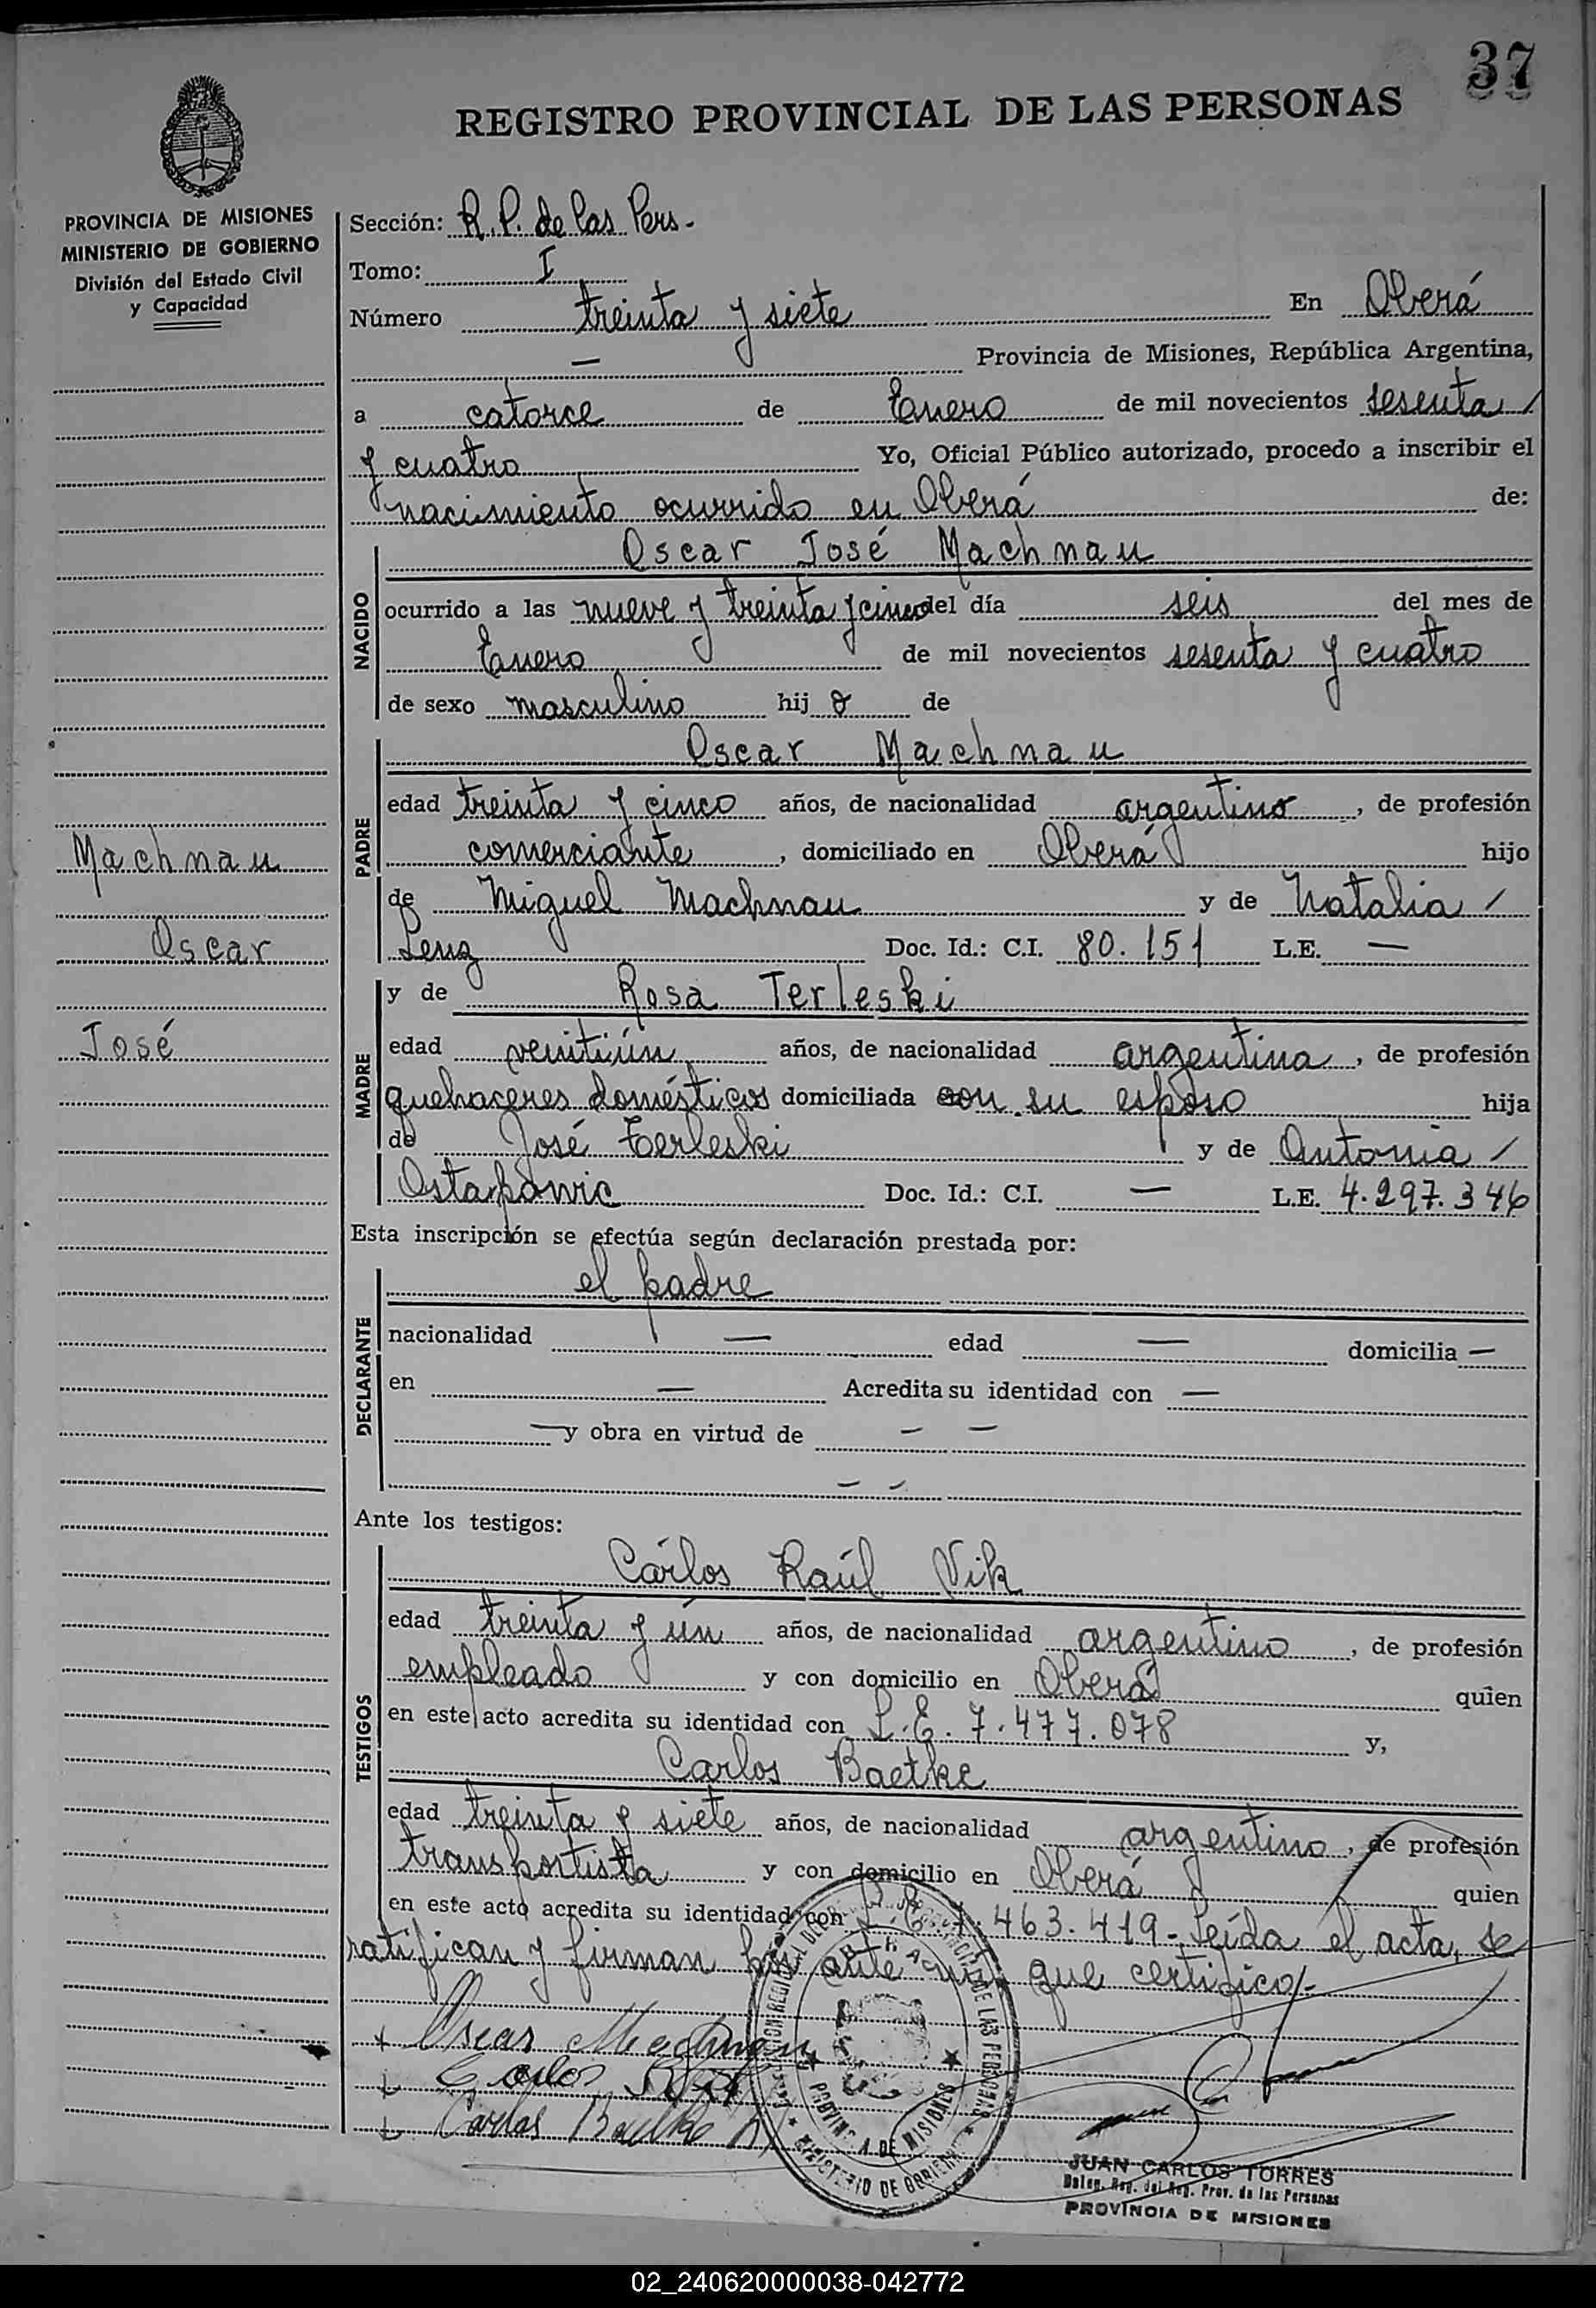 37
REGISTRO PROVINCIAL DE LAS PERSONAS
PROVINCIA DE MISIONES
MINISTERIO DE GOBIERNO
División del Estado Civil
y Capacidad
Sección: R. P. de las Pers.
Tomo: I
Número treinta y siete En Oberá
— Provincia de Misiones, República Argentina,
a catorce de Enero de mil novecientos sesenta /
y cuatro Yo, Oficial Público autorizado, procedo a inscribir el
nacimiento ocurrido en Oberá de:
NACIDO
Oscar José Machnau
ocurrido a las nueve y treinta y cinco del día seis del mes de
Enero de mil novecientos sesenta y cuatro
de sexo masculino hij o de
PADRE
Oscar Machnau
edad treinta y cinco años, de nacionalidad argentino, de profesión
comerciante, domiciliado en Oberá hijo
de Miguel Machnau y de Natalia /
Lenz Doc. Id.: C.I. 80.151 L.E. —
Machnau
Oscar
José
MADRE
y de Rosa Terleski
edad veintiún años, de nacionalidad argentina, de profesión
quehaceres domésticos domiciliada con su esposo hija
de José Terleski y de Antonia /
Ostapowic Doc. Id.: C.I. — L.E. 4.297.346
Esta inscripción se efectúa según declaración prestada por:
DECLARANTE
el padre
nacionalidad — edad — domicilia —
en — Acredita su identidad con —
— y obra en virtud de — —
— —
Ante los testigos:
TESTIGOS
Cárlos Raúl Vik
edad treinta y ún años, de nacionalidad argentino, de profesión
empleado y con domicilio en Oberá quien
en este acto acredita su identidad con L.E. 7.477.078 y,
Carlos Baetke
edad treinta y siete años, de nacionalidad argentino, de profesión
transportista y con domicilio en Oberá quien
en este acto acredita su identidad con 463.419- Leída el acta, se
ratifican y firman por ante que certifico.-
Oscar Machnau
Carlos
Carlos Baetke
PROVINCIA DE MISIONES
MINISTERIO DE GOBIERNO
JUAN CARLOS TORRES
Deleg. Reg. del Reg. Prov. de las Personas
PROVINCIA DE MISIONES
02_240620000038-042772